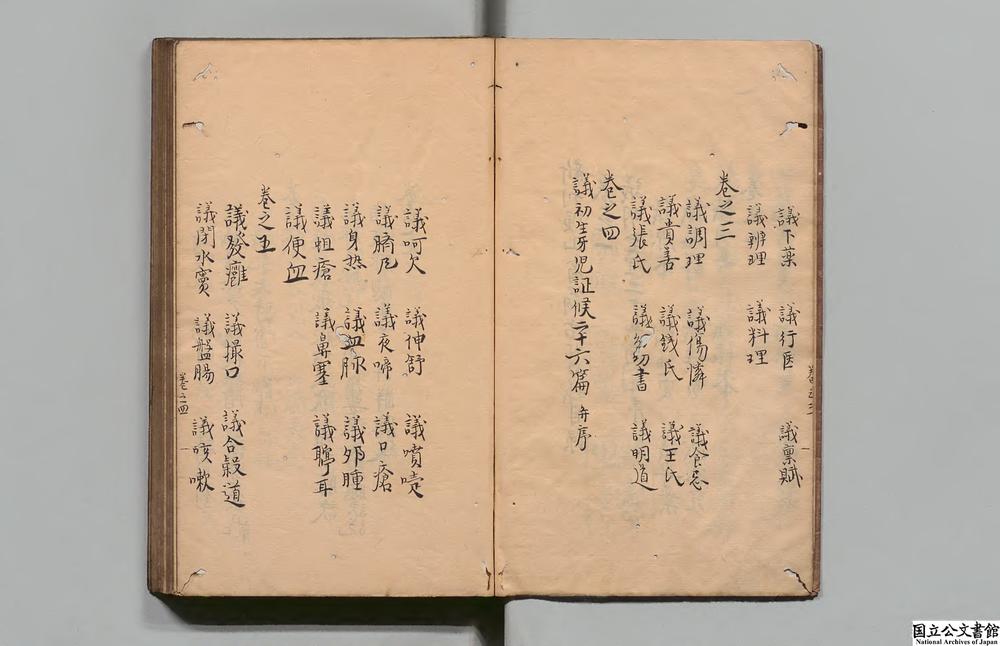 議下藥 議行医 議禀賦
議辨理 議料理
巻之三
議調理 議傷憐 議食忌
議貴善 議錢氏 議王氏
議張氏 議幼書 議明道
巻之四
議初生牙児証候二十六篇 并序
議呵欠 議伸舒 議噴嚏
議臍突 議夜啼 議口瘡
議身熱 議血脉 議卵腫
議蛆瘡 議鼻塞 議聤耳
議便血
巻之五
議發癰 議撮口 議合穀道
議閉水竇 議盤腸 議咳嗽
巻之三
巻之四 一
国立公文書館
National Archives of Japan